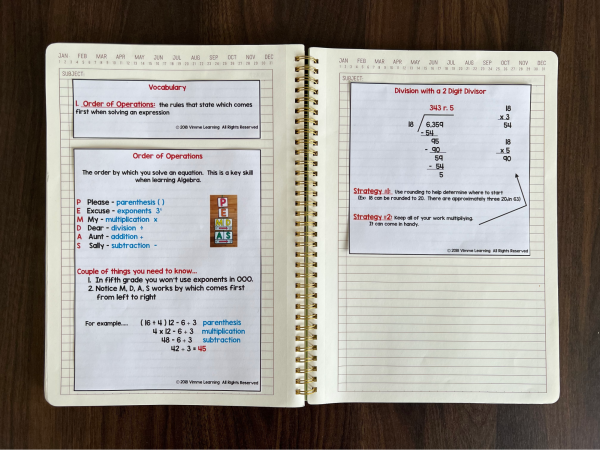 JAN FEB MAR APR MAY JUN JUL AUG SEP OCT NOV DEC
SUBJECT:
Vocabulary
1. Order of Operations: the rules that state which comes
first when solving an expression
© 2018 Vinnie Learning All Rights Reserved
Order of Operations
The order by which you solve an equation. This is a key skill
when learning Algebra.
P Please - parenthesis ( )
E Excuse - exponents 3²
M My - multiplication x
D Dear - division ÷
A Aunt - addition +
S Sally - subtraction -
P
E
M D
A S
Couple of things you need to know...
1. In fifth grade you won't use exponents in OOO.
2. Notice M, D, A, S works by which comes first
from left to right
For example.... ( 16 ÷ 4 ) 12 - 6 + 3 parenthesis
4 x 12 - 6 + 3 multiplication
48 - 6 + 3 subtraction
42 + 3 = 45
© 2018 Vinnie Learning All Rights Reserved
JAN FEB MAR APR MAY JUN JUL AUG SEP OCT NOV DEC
SUBJECT:
Division with a 2 Digit Divisor
343 r. 5
18 6,359
- 54
95
- 90
59
- 54
5
18
x 3
54
18
x 5
90
Strategy #1: Use rounding to help determine where to start
(Ex: 18 can be rounded to 20. There are approximately three 20s in 63)
Strategy #2: Keep all of your work multiplying.
It can come in handy.
© 2018 Vinnie Learning All Rights Reserved